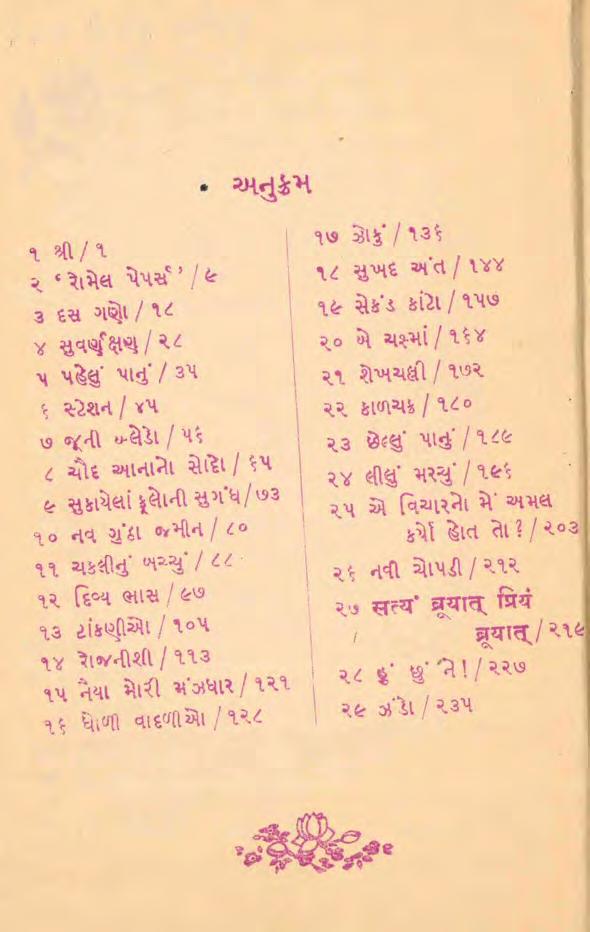 • અનુક્રમ
૧ શ્રી / ૧
૨ ‘ રોમેલ પેપર્સ ’ / ૯
૩ દસ ગણો / ૧૮
૪ સુવર્ણક્ષણ / ૨૮
૫ પહેલું પાનું / ૩૫
૬ સ્ટેશન / ૪૫
૭ જૂની બ્લેડો / ૫૬
૮ ચૌદ આનાનો સોદો / ૬૫
૯ સુકાયેલાં ફૂલોની સુગંધ / ૭૩
૧૦ નવ ગુંઠા જમીન / ૮૦
૧૧ ચકલીનું બચ્ચું / ૮૮
૧૨ દિવ્ય ભાસ / ૯૭
૧૩ ટાંકણીઓ / ૧૦૫
૧૪ રોજનીશી / ૧૧૩
૧૫ નૈયા મોરી મંઝધાર / ૧૨૧
૧૬ ધોળી વાદળીઓ / ૧૨૮
૧૭ ઝોકું / ૧૩૬
૧૮ સુખદ અંત / ૧૪૪
૧૯ સેકંડ કાંટો / ૧૫૭
૨૦ બે ચશ્માં / ૧૬૪
૨૧ શેખચલ્લી / ૧૭૨
૨૨ કાળચક્ર / ૧૮૦
૨૩ છેલ્લું પાનું / ૧૮૯
૨૪ લીલું મરચું / ૧૯૬
૨૫ એ વિચારનો મેં અમલ
કર્યો હોત તો ? / ૨૦૩
૨૬ નવી ચોપડી / ૨૧૨
૨૭ सत्यं ब्रूयात् प्रियं
ब्रूयात् / ૨૧૯
૨૮ હું છું ને ! / ૨૨૭
૨૯ ઝંડો / ૨૩૫